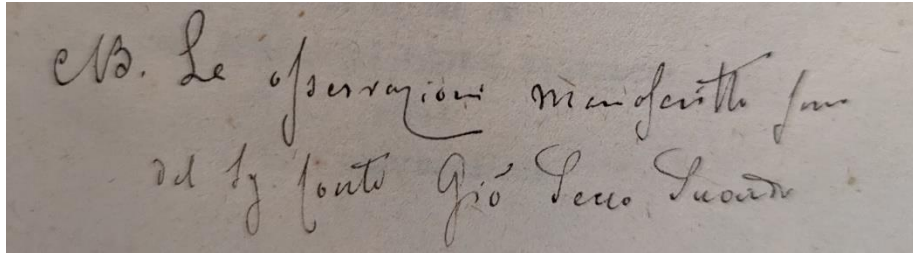 NB. Le osservazioni manoscritte sono
del Sg. Conte Giō Secco Suardo